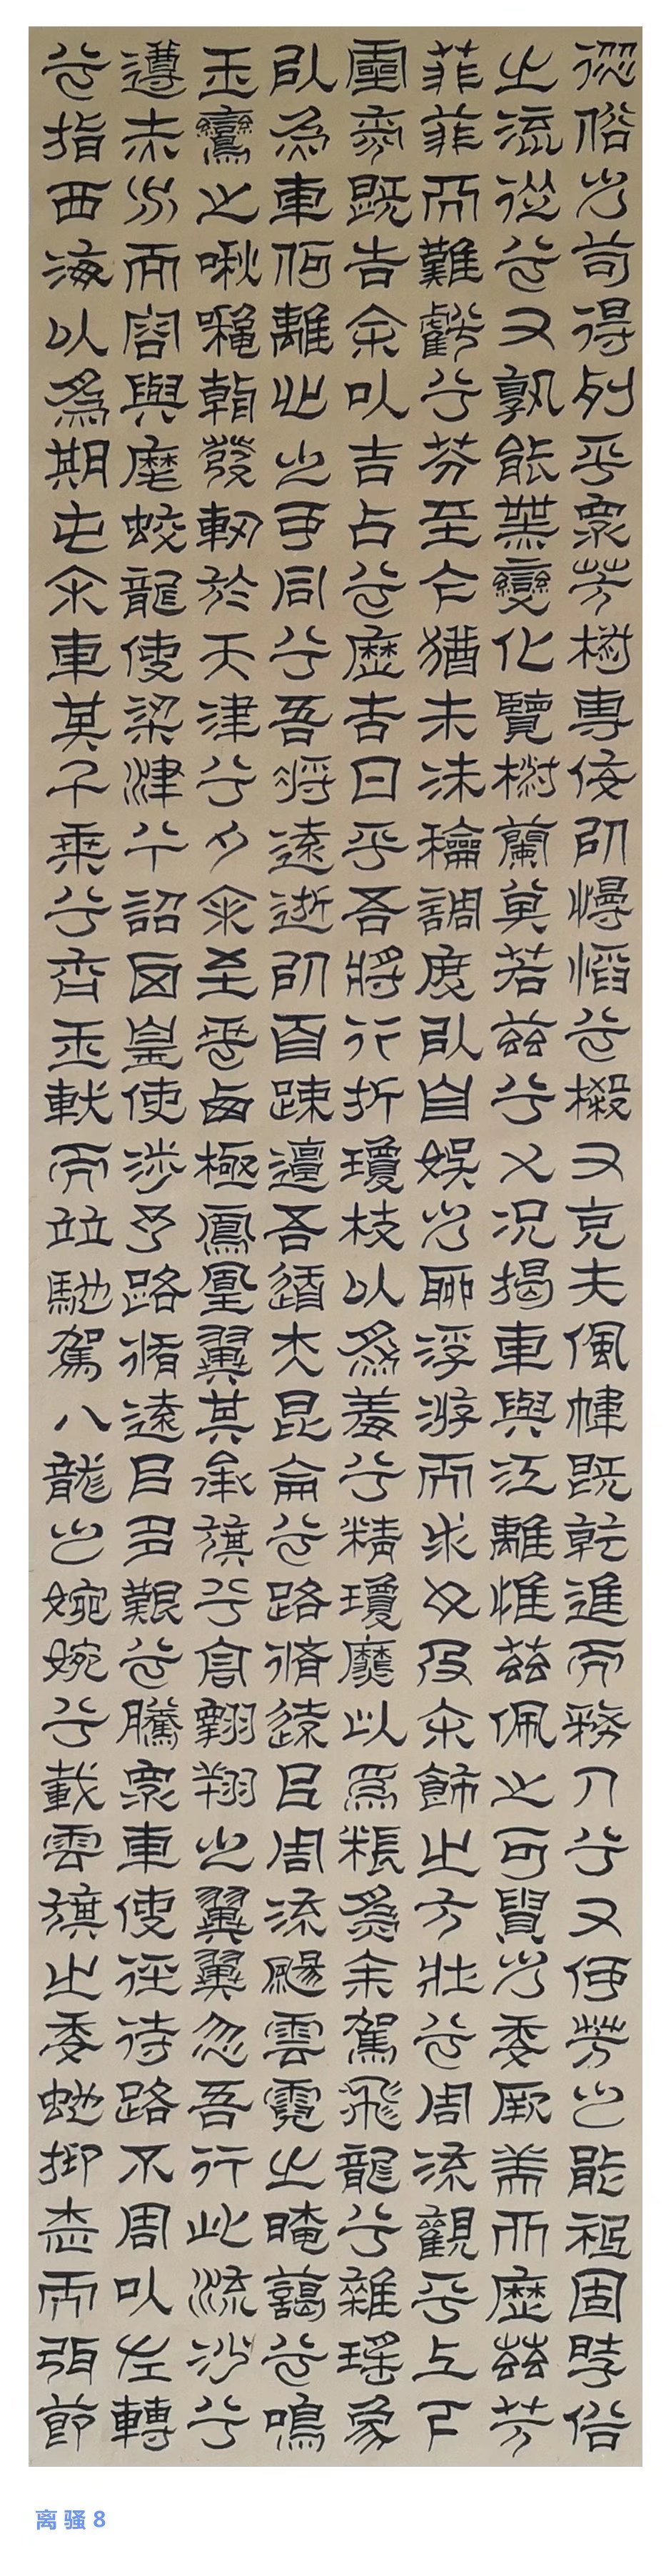 從俗兮苟得列乎眾芳椒專佞以慢慆兮樧又充夫佩幃既乾進而務入兮又何芳之能祗固時俗
之流從兮又孰能無變化覽椒蘭其若茲兮又況揭車與江離惟茲佩之可貴兮委厥美而歷茲芳
菲菲而難虧兮芬至今猶未沬龢調度以自娛兮聊浮游而求女及余飾之方壯兮周流觀乎上下
靈氛既告余以吉占兮歷吉日乎吾將行折瓊枝以為羞兮精瓊爢以為粻為余駕飛龍兮雜瑤象
以為車何離心之可同兮吾將遠逝以自疎邅吾道夫昆侖兮路脩遠以周流颺雲霓之晻藹兮鳴
玉鸞之啾啾朝發軔於天津兮夕余至乎西極鳳凰翼其承旗兮高翱翔之翼翼忽吾行此流沙兮
遵赤水而容與麾蛟龍使梁津兮詔西皇使涉予路脩遠以多艱兮騰眾車使徑待路不周以左轉
兮指西海以為期屯余車其千乘兮齊玉軑而並馳駕八龍之婉婉兮載雲旗之委蛇抑志而弭節
离骚8